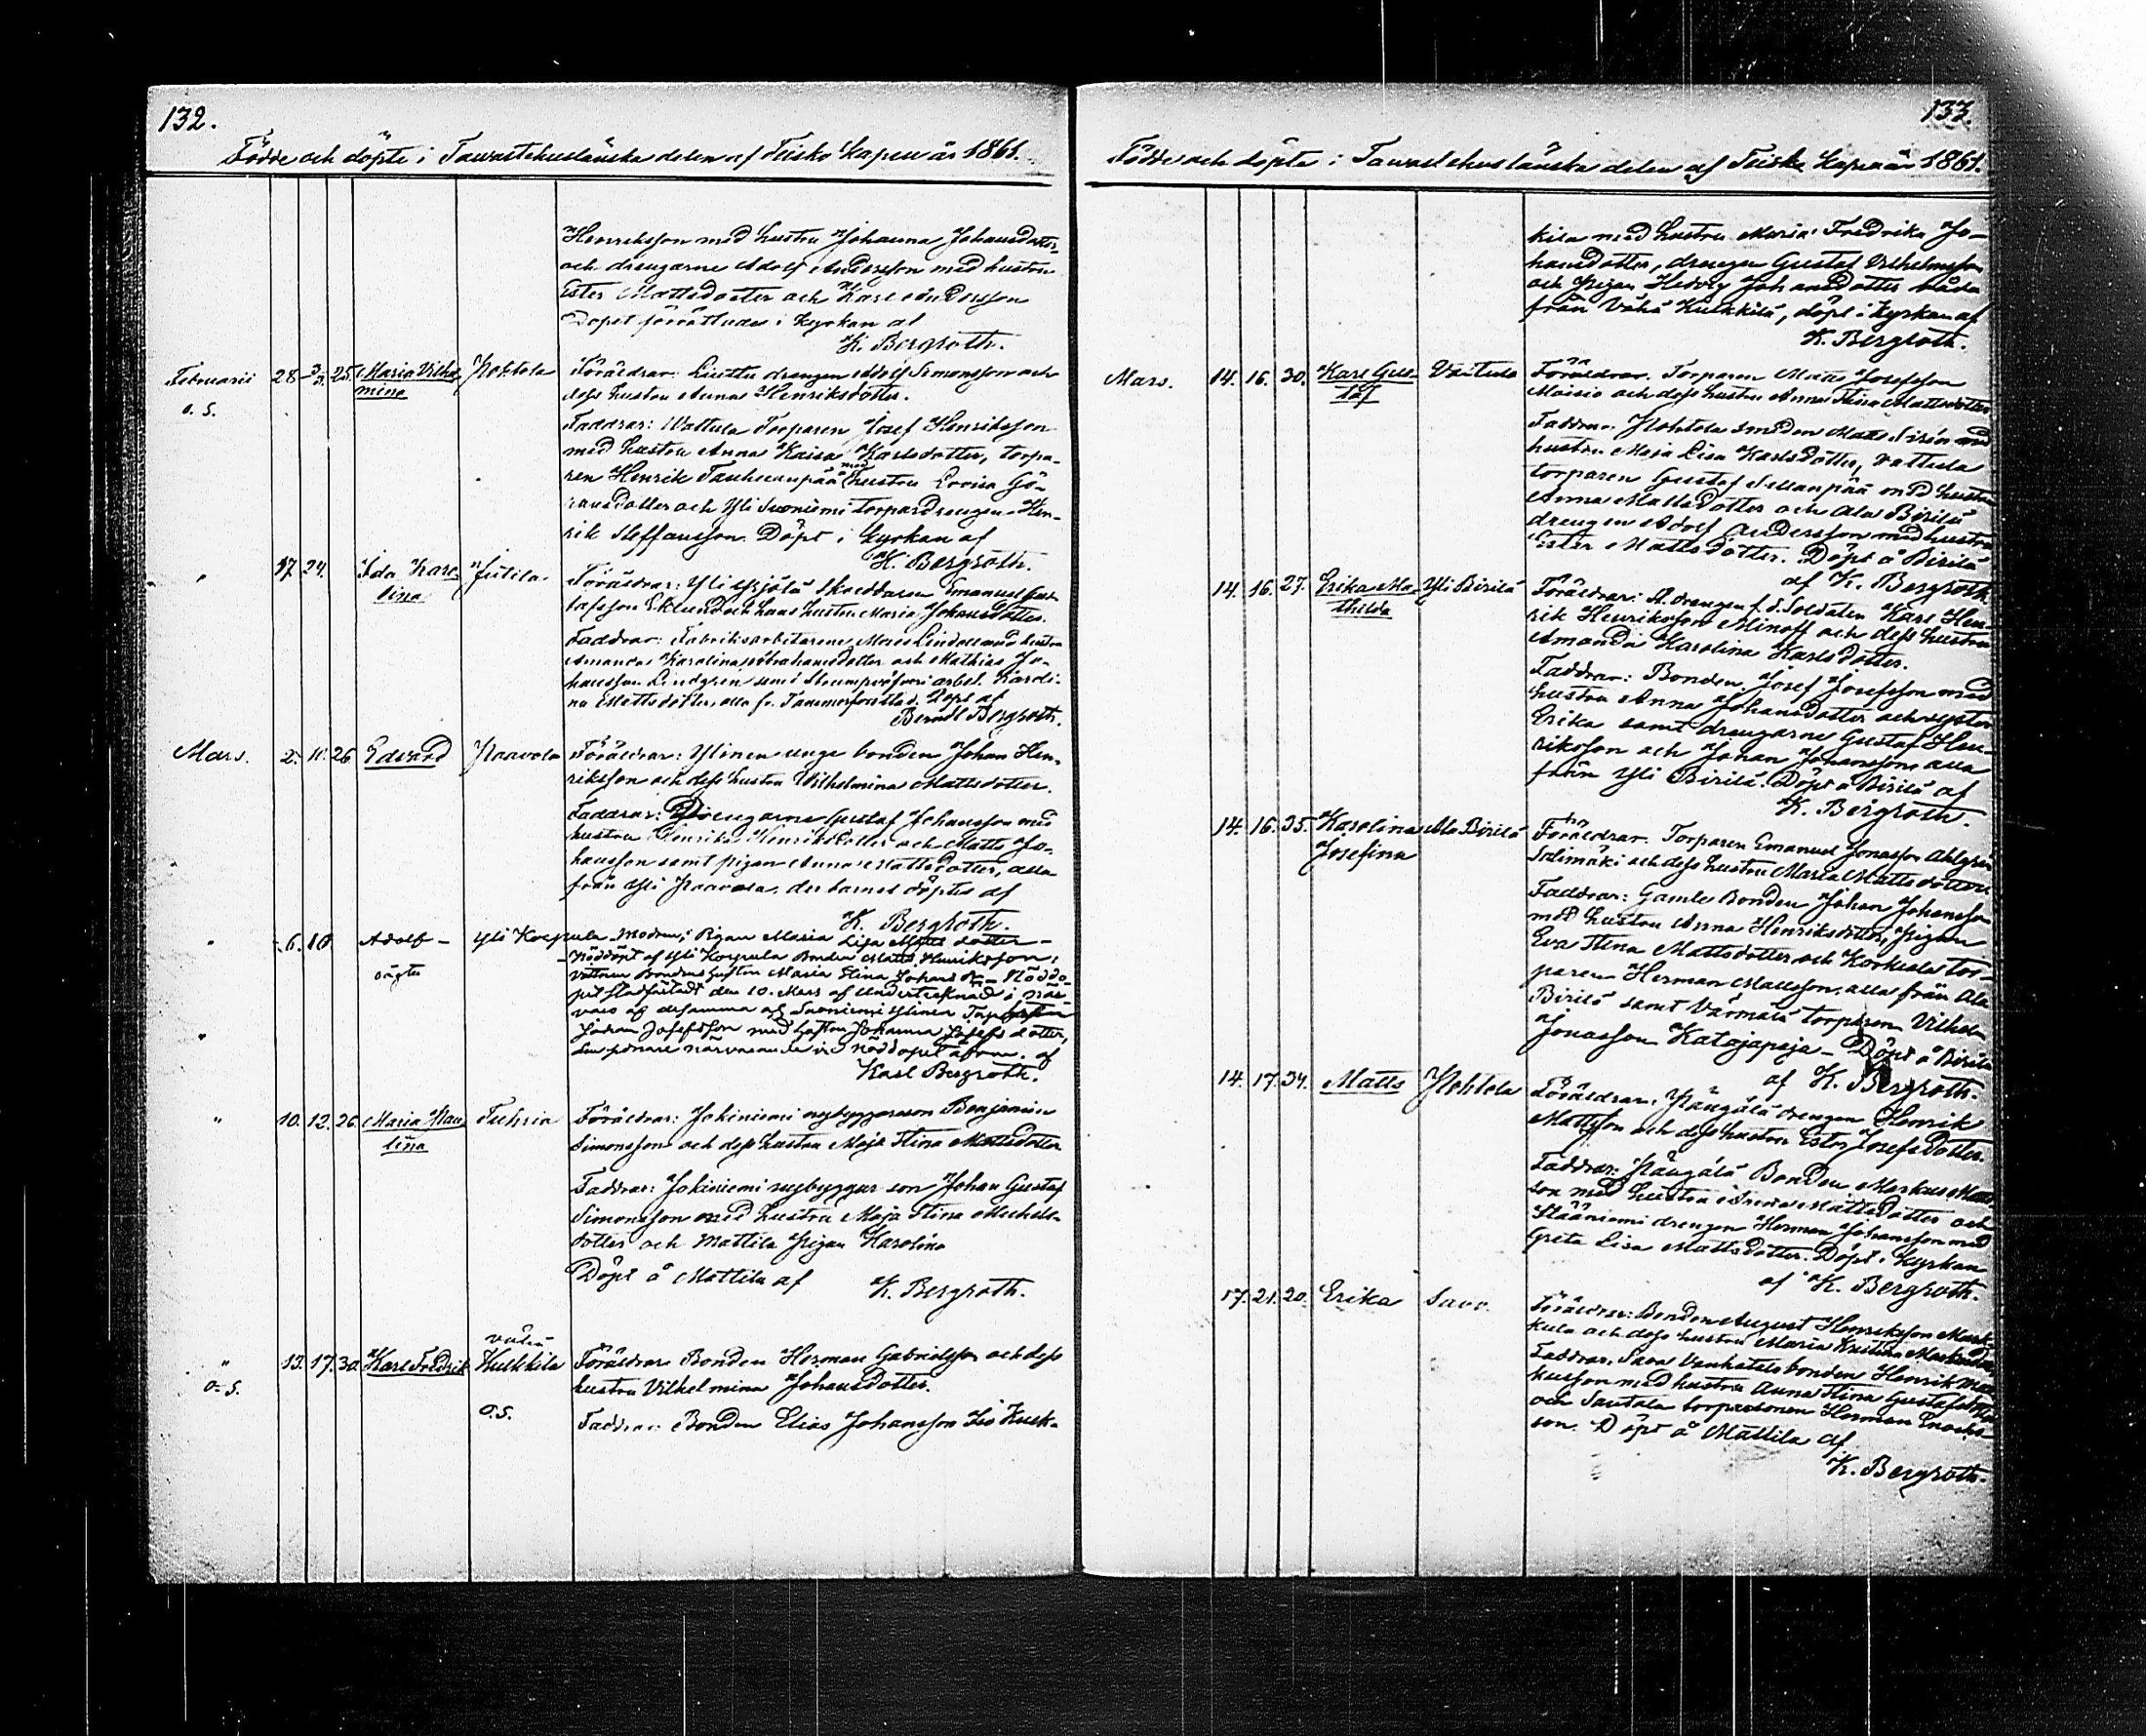 132.
Födde och döpte i Tawastehuslänska delen af Teisko Kapell år 1861.
Henriksson med hustru Johanna Johansdotter,
och drengarne Adolf Andersson med hustru
Ester Mattsdotter och Karl Andersson
Dopet förrättades i kyrkan af
K. Bergroth.
Februarii 28 3/3. 25. Maria Vilhel- Pohtola Föräldrar: drengen Adolf Simonsson och
o. S. mina dess hustru Anna Henriksdotter.
Faddrar: Wattula Torparen Josef Henriksson
med hustru Anna Kaisa Karlsdotter, torpa-
ren Henrik med hustru Lovisa Gö-
ransdotter och Yli Suoniemi torpardrengen Hen-
rik Steffansson. Döpt i kyrkan af
K. Bergroth.
" 17. 24. Ida Karo- Jutila Föräldrar: Yli Skräddaren Emanuel Gus-
lina tafsson Eklund och hans hustru Maria Johansdotter.
Faddrar: Fabriksarbetarene Lindell med hustru
Amanda Karolina Abrahamsdotter och Mathias Jo-
hansson Lindgren samt arbet. Karoli-
na Mattsdotter, alla fr. Tammerfors stad. Döpt af
Berndt Bergroth.
Mars. 2. 10. 26 Edvard Paavola Föräldrar: Ylinen unge bonden Johan Hen-
riksson och dess hustru Wilhelmina Mattsdotter.
Faddrar: Drengarne Gustaf Johansson med
hustru Henrika Henriksdotter och Matts Jo-
hansson samt pigan Anna Mattsdotter, alla
från Yli Paavola, der barnet döptes af
K. Bergroth.
" 6. 10 Adolf - Yli Korpula Modren: Pigan Maria Lisa Matts dotter -
oägta Nöddöpt af Yli Korpula Bonden Matts Henriksson;
vittnen Bondens hustru Maria Stina Johans dr - Nöddo-
pet stadfästadt den 10. Mars af undertecknad i när-
varo af desamma af Suoniemi Ylinen
Josefsson med hustru Johanna Josefs dotter,
den förnare närvarande vid nöddopet äfven. af
Karl Bergroth.
" 10. 12. 26 Maria Pau- Tuhria Föräldrar: Jakiniemi nybyggareson Benjamin
lina Simonsson och dess hustru Maja Stina Mattsdotter
Faddrar: Jakiniemi nybyggar son Johan Gustaf
Simonsson med hustru Maja Stina Michels-
dotter och Mattila pigan Karolina
Döpt å Mattila af K. Bergroth.
" 13. 17. 30. Karl Fredrik Vähä Kuhkkila Föräldrar Bonden Herman Gabrielsson och dess
o. S. hustru Vilhelmina Johansdotter.
o. S. Faddrar: Bonden Elias Johansson Iso Kuhk-
133.
Födde och döpta i Tawastehuslänska delen af Teisko Kapell år 1861.
kila med hustru Maria Fredrika Jo-
hansdotter, drengen Gustaf Wilhelmsson
och pigan Hedvig Johansdotter båda
från Vähä Kuhkkila, döpt i kyrkan af
K. Bergroth.
Mars. 14. 16. 30. Karl Gus- Vättula Föräldrar. Torparen Matts Josefsson
taf Moisio och dess hustru Anna Stina Mattsdotter
Faddrar. Pohtola smeden Matts Sirén med
hustru Maja Lisa Karlsdotter, Vattula
torparen Gustaf med hustru
Anna Mattsdotter och Ala Pirilä
drengen Adolf Andersson med hustru
Ester Mattsdotter. Döpt å Pirilä
af K. Bergroth.
14. 16. 27. Erika Ma- Yli Pirilä Föräldrar: drengen f. d. Soldaten Karl Hen-
thilda rik Henriksson Minoff och dess hustru
Amanda Karolina Karlsdotter.
Faddrar: Bonden Josef Josefsson med
hustru Anna Johansdotter och syster
Erika samt drengarne Gustaf Hen-
riksson och Johan Johansson, alla
från Yli Pirilä. Döpt å Pirilä af
K. Bergroth.
14. 16. 35. Karolina Ala Pirilä Föräldrar. Torparen Emanuel Jonasson Ahlgren
Josefina Salimäki och dess hustru Maria Mattsdotter
Faddrar: Gamle Bonden Johan Johansson
med hustru Anna Henriksdotter, pigan
Eva Stina Mattsdotter och Korkeala tor-
paren Herman Mattsson, alla från Ala
Pirilä samt Värmälä torparen Vilhelm
Jonasson Katajapoja - Döpt å Pirilä
af K. Bergroth.
14. 17. 34. Matts Pohtola Föräldrar. drengen Henrik
Mattsson och dess hustru Ester Josefsdotter.
Faddrar: Bonden Markus Matts-
son med hustru Mattsdotter och
Pääniemi drengen Herman Johansson med
Greta Lisa Mattsdotter. Döpt i kyrkan
af K. Bergroth.
17. 21. 20. Erika Savo Föräldrar: Bonden August Henriksson
och dess hustru Maria Kristina
Faddrar. Savo Vanhatalo bonden Henrik Mar-
kusson med hustru Anna Stina Gustafsdotter
och Santala torparsonen Herman Enochs-
son. Döpt å Mattila af
K. Bergroth.